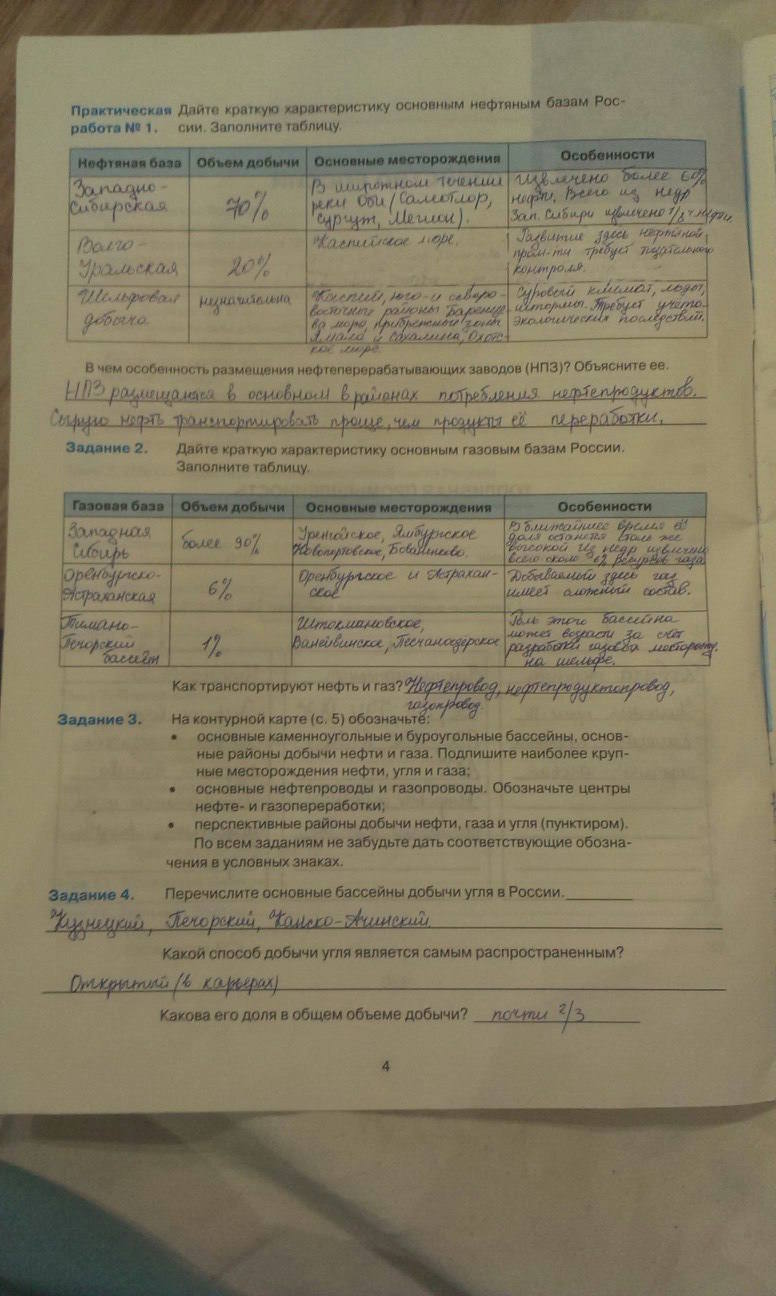 Практическая Дайте краткую характеристику основным нефтяным базам Рос-
работа № 1. сии. Заполните таблицу.
Нефтяная база Объем добычи Основные месторождения Особенности
Западно-
Сибирская
70%
В широтном течении
реки Оби (Самотлор,
Сургут, Мегион).
Извлечено более 60%
нефти. Всего из недр
Зап. Сибири извлечено
Волго-
Уральская
20%
Каспийское море.
Развитие здесь нефтяной
пром-ти требует тщательного
контроля.
Шельфовая
добыча
незначительна
Каспий, юго- и северо-
восточные районы Баренце-
ва моря, прибрежные зоны
Ямала и Сахалина, Охотс-
кое море.
Суровый климат, льды,
штормы. Требует учёта
экологических последствий.
В чем особенность размещения нефтеперерабатывающих заводов (НПЗ)? Объясните ее.
НПЗ размещаются в основном в районах потребления нефтепродуктов.
Сырую нефть транспортировать проще, чем продукты её переработки.
Задание 2. Дайте краткую характеристику основным газовым базам России.
Заполните таблицу.
Газовая база Объем добычи Основные месторождения Особенности
Западная
Сибирь
более 90%
Уренгойское, Ямбургское
Новопортовское, Бованенково.
В ближайшее время её
доля останется столь же
высокой. Из недр извлечено
всего около 6% ресурсов газа
Оренбургско-
Астраханская
6%
Оренбургское и Астрахан-
ское
Добываемый здесь газ
имеет сложный состав.
Тимано-
Печорский
бассейн
1%
Штокмановское,
Ванейвинское, Песчаноозёрское
Роль этого бассейна
может возрасти за счёт
разработки газовых месторожд.
на шельфе.
Как транспортируют нефть и газ? Нефтепровод, нефтепродуктопровод,
газопровод.
Задание 3. На контурной карте (с. 5) обозначьте:
• основные каменноугольные и буроугольные бассейны, основ-
ные районы добычи нефти и газа. Подпишите наиболее круп-
ные месторождения нефти, угля и газа;
• основные нефтепроводы и газопроводы. Обозначьте центры
нефте- и газопереработки;
• перспективные районы добычи нефти, газа и угля (пунктиром).
По всем заданиям не забудьте дать соответствующие обозна-
чения в условных знаках.
Задание 4. Перечислите основные бассейны добычи угля в России.
Кузнецкий, Печорский, Канско-Ачинский
Какой способ добычи угля является самым распространенным?
Открытый (в карьерах)
Какова его доля в общем объеме добычи? почти 2/3
4